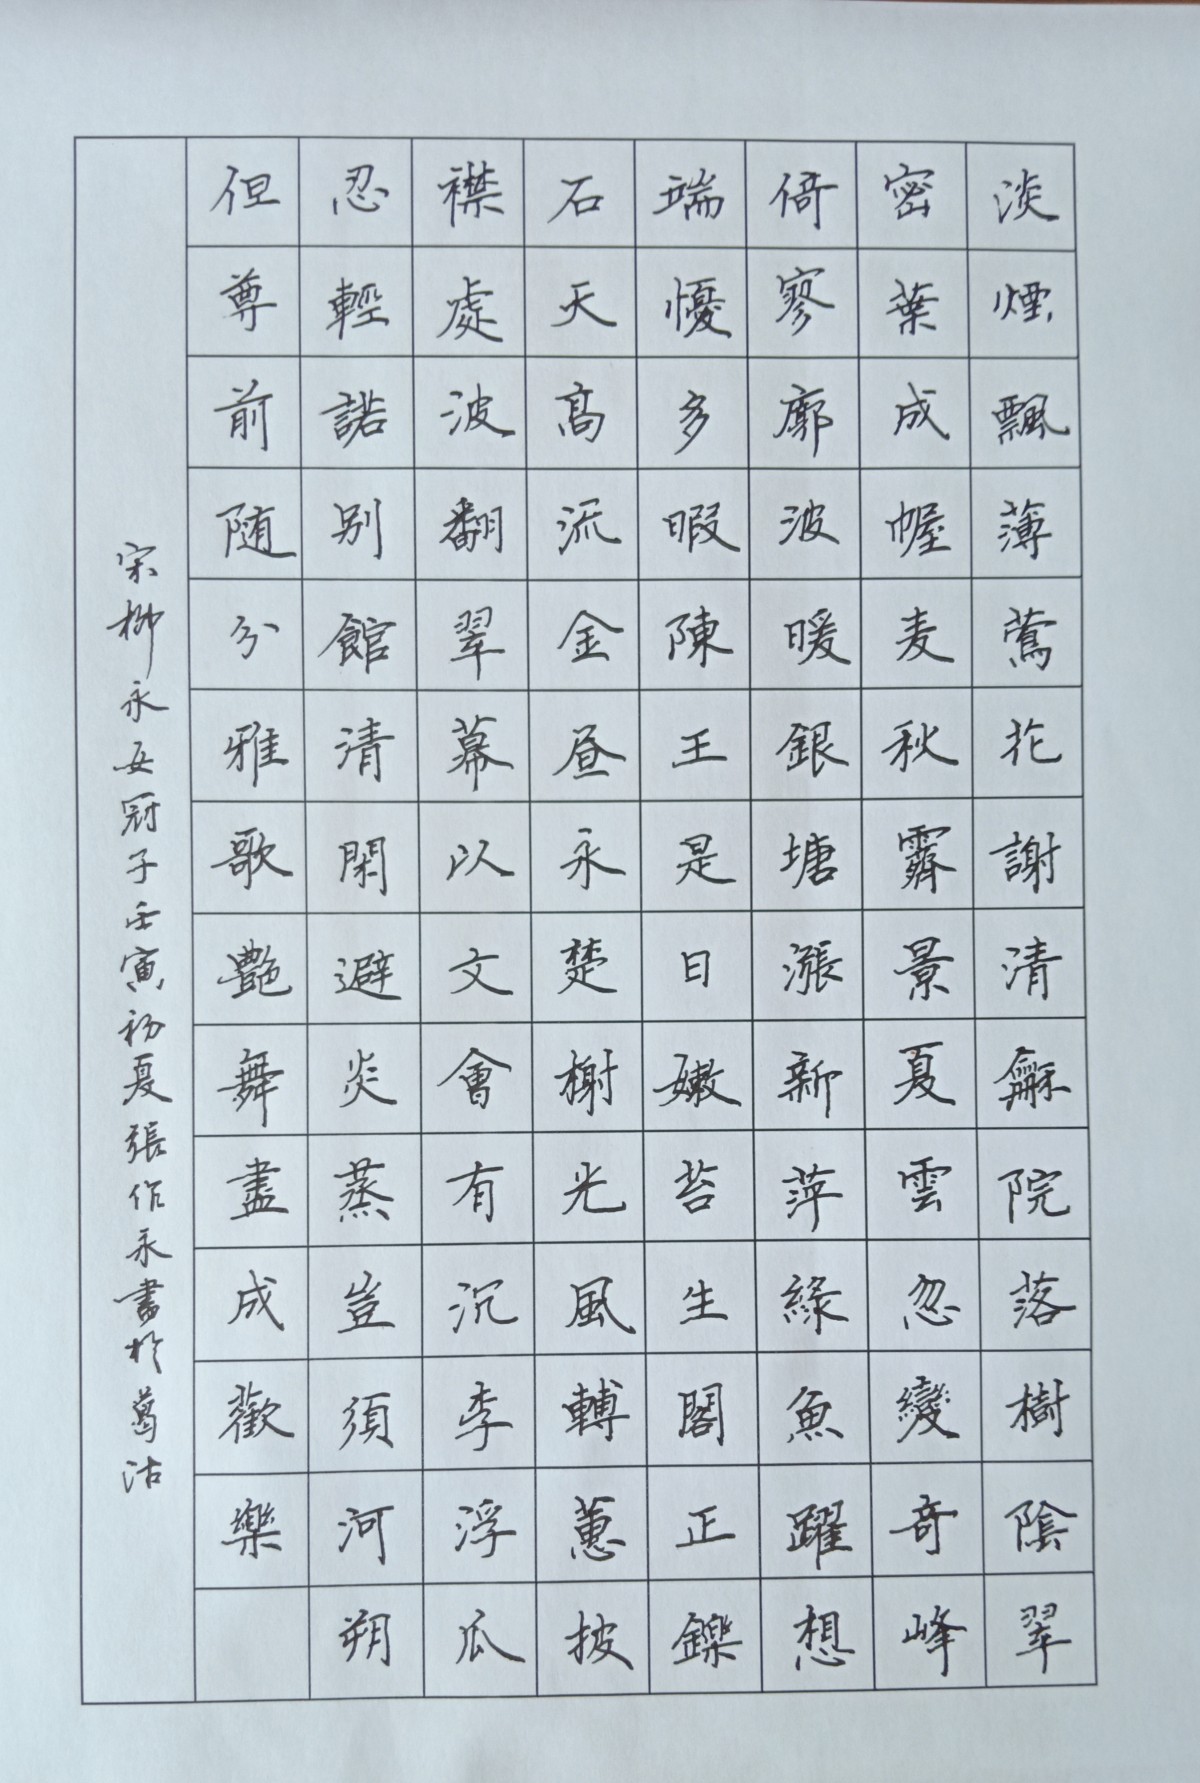 淡煙飄薄鶯花謝清龢院落樹陰翠
密葉成幄麦秋霽景夏雲忽變奇峰
倚寥廓波暖銀塘漲新萍綠魚躍想
端憂多暇陳王是日嫩苔生閣正鑠
石天高流金昼永楚榭光風轉蕙披
襟處波翻翠幕以文會有沉李浮瓜
忍輕諾別館清閑避炎蒸豈須河朔
但尊前随分雅歌艷舞盡成歡樂
宋柳永女冠子壬寅初夏張作永書於葛沽